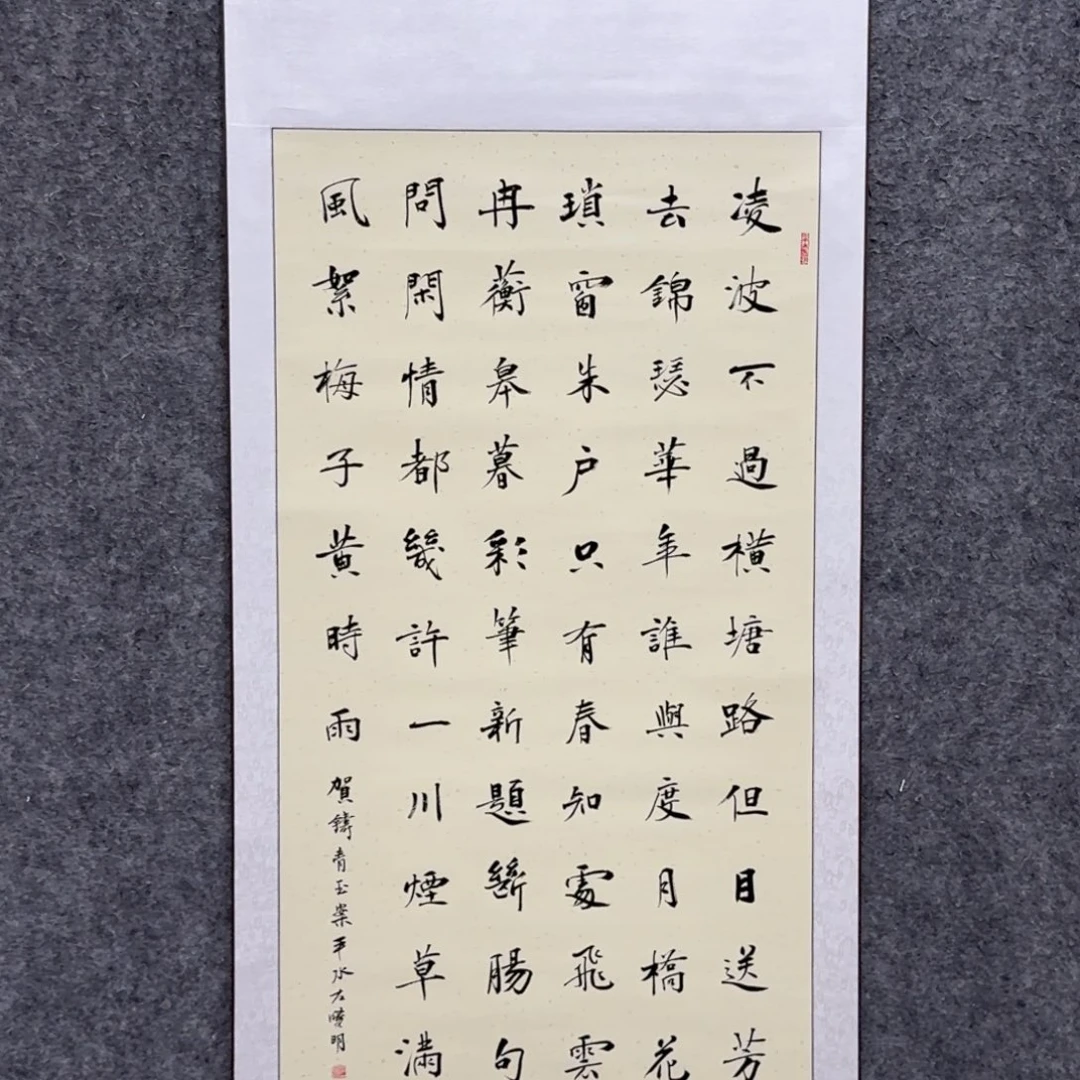 凌波不過橫塘路但目送芳
去錦瑟華年誰與度月橋花
瑣窗朱戶只有春知處飛雲
冉蘅皋暮彩筆新題斷腸句
問閑情都幾許一川煙草滿
風絮梅子黃時雨
賀鑄青玉案平水左曉明